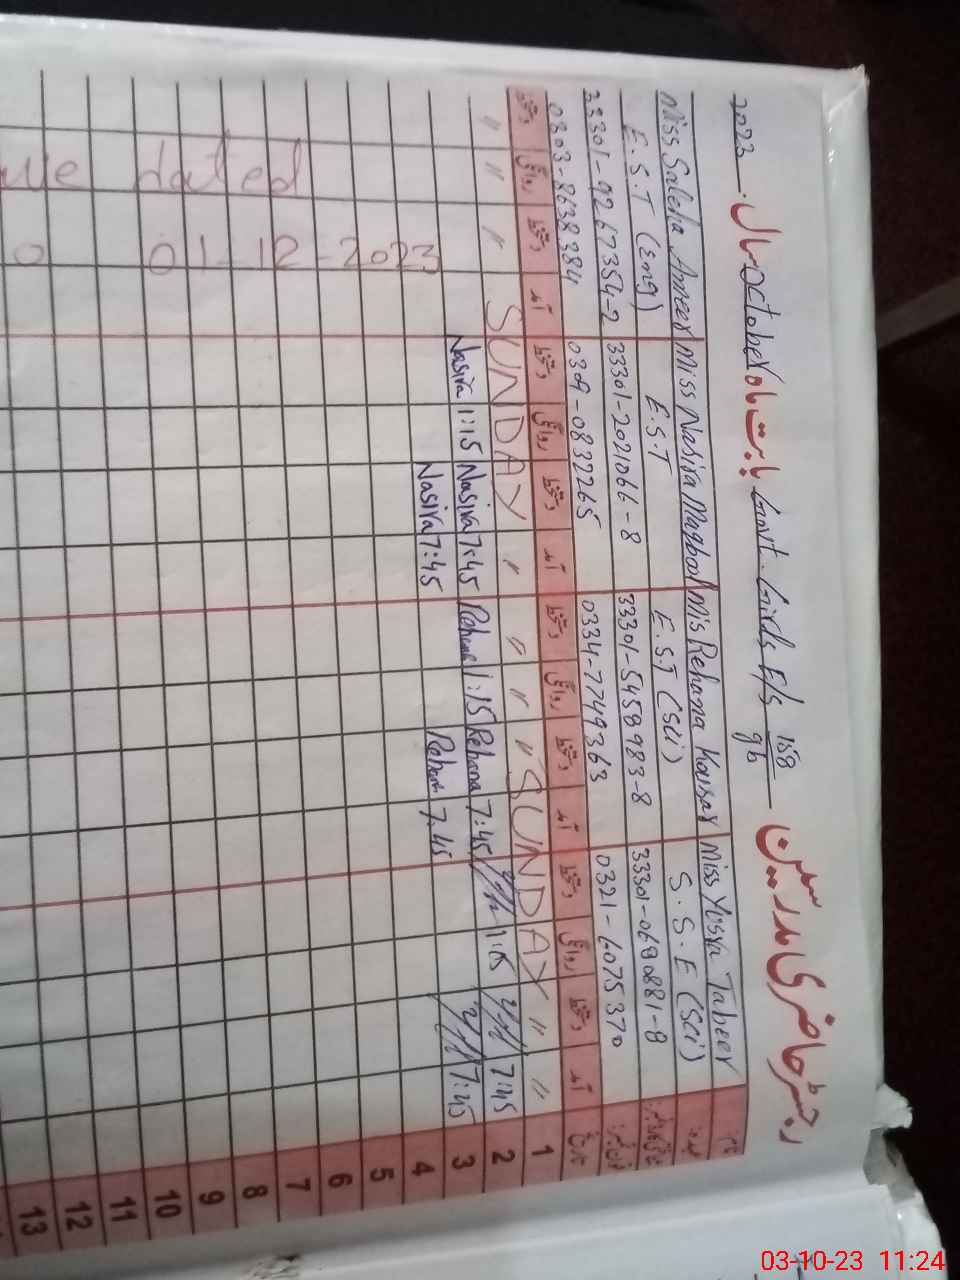 رجسٹر حاضری مدرسین Govt. Girls E/S 158/gb بابت ماہ October سال 2023
نام Miss Yusra Tabeer Mis Rehana Kausar Miss Nasira Maqbool Miss Saleha Ameer
عہدہ S.S.E (Sci) E.S.T (Sci) E.S.T E.S.T (Eng)
33301-0690881-8 33301-5459983-8 33301-2021066-8 33301-9267354-2
فون نمبر 0321-6075370 0334-7749363 0309-0832265 0303-8638984
تاریخ آمد دستخط روانگی دستخط آمد دستخط روانگی دستخط آمد دستخط روانگی دستخط آمد دستخط روانگی دستخط
1 " " SUNDAY " " " " SUNDAY " " "
2 7:45 1:15 7:45 Rehana 1:15 Rehana 7:45 Nasira 1:15 Nasira
3 7:45 7:45 Rehana 7:45 Nasira
4
5
6
7
8
9
10
11
12
13
dated
01-12-2023
03-10-23 11:24